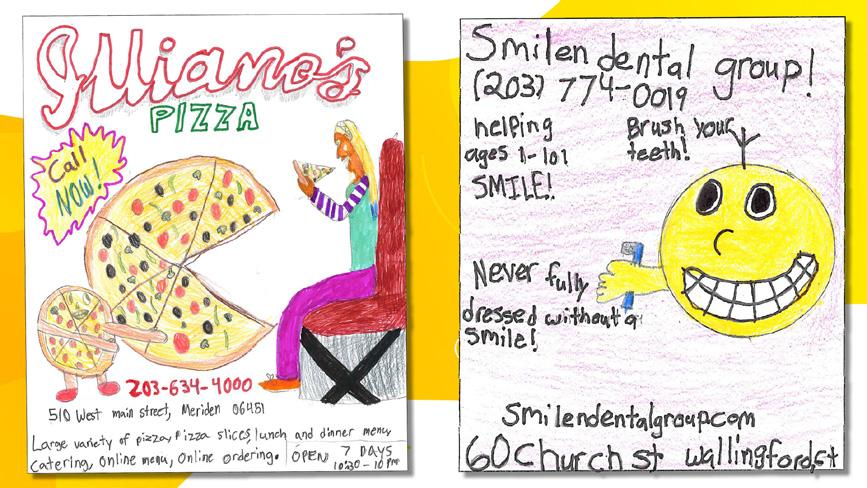 Illiano's
PIZZA
Call
NOW!
203-634-4000
510 West main street, Meriden 06451
Large variety of pizza, Pizza slices, lunch and dinner menu,
catering, Online menu, Online ordering.
OPEN: 7 DAYS
10:30-10 PM
Smilen dental group!
(203) 774-0019
helping
ages 1-101
SMILE!
Brush your
teeth!
Never fully
dressed without a
smile!
Smilendentalgroup.com
60 Church st wallingford,ct